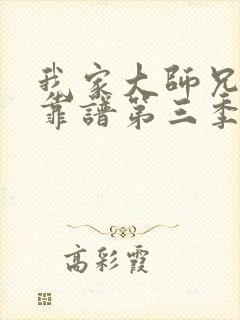 我家大師兄
靠譜第三季
高彩霞